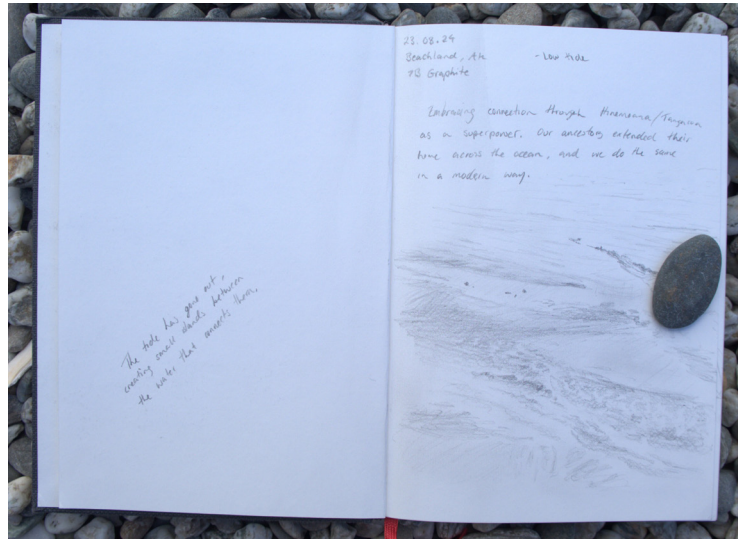 The tide has gone out,
creating small islands between
the water that connects them.
23.08.24
Beachland, Ak - Low tide
7B Graphite
Embracing connection through Hinemoana/Tangaroa
as a superpower. Our ancestors extended their
home across the ocean, and we do the same
in a modern way.